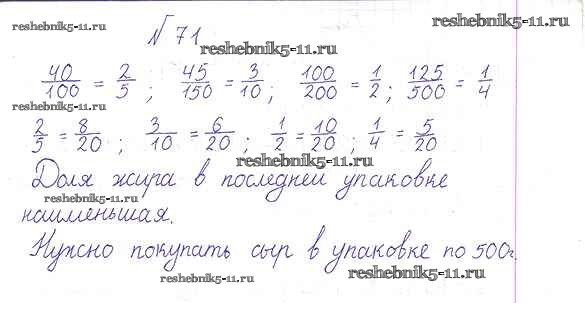 reshebnik5-11.ru
reshebnik5-11.ru
№ 71
reshebnik5-11.ru
40/100 = 2/5 ; 45/150 = 3/10 ; 100/200 = 1/2 ; 125/500 = 1/4
reshebnik5-11.ru
2/5 = 8/20 ; 3/10 = 6/20 ; 1/2 = 10/20 ; 1/4 = 5/20
reshebnik5-11.ru
Доля жира в последней упаковке
reshebnik5-11.ru
наименьшая.
Нужно покупать сыр в упаковке по 500г.
reshebnik5-11.ru
reshebnik5-11.ru